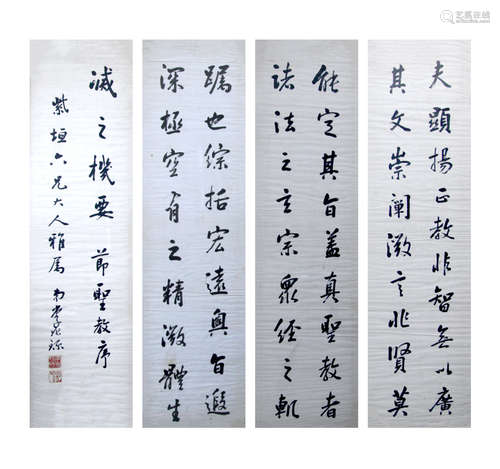 夫顯揚正教非智無以廣
其文崇闡微言非賢莫
能定其旨蓋真聖教者
諸法之玄宗眾經之軌
躅也綜括宏遠奧旨遐
深極空有之精微體生
滅之機要 節聖教序
紫垣六兄大人雅屬